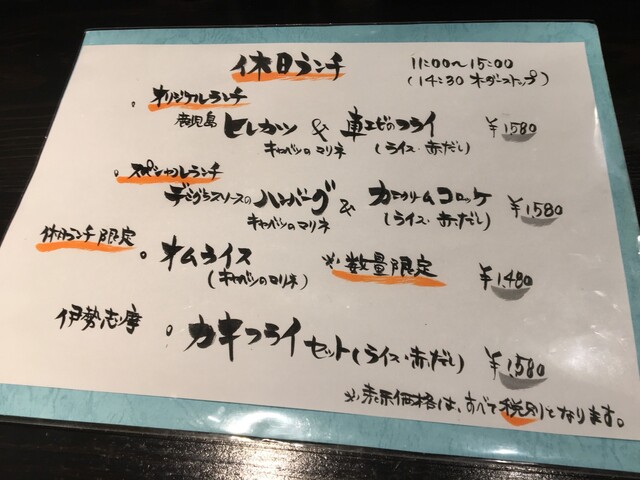 休日ランチ 11:00〜15:00
(14:30 オーダーストップ)
。オリジナルランチ
鹿児島 ヒレカツ & 車エビのフライ ¥1580
キャベツのマリネ (ライス・赤だし)
。スペシャルランチ
デミグラスソースのハンバーグ & カニクリームコロッケ ¥1,580
キャベツのマリネ (ライス・赤だし)
休日ランチ限定 。オムライス ※数量限定 ¥1,480
(キャベツのマリネ)
伊勢志摩 。カキフライセット(ライス・赤だし) ¥1,580
※表示価格は、すべて税別となります。